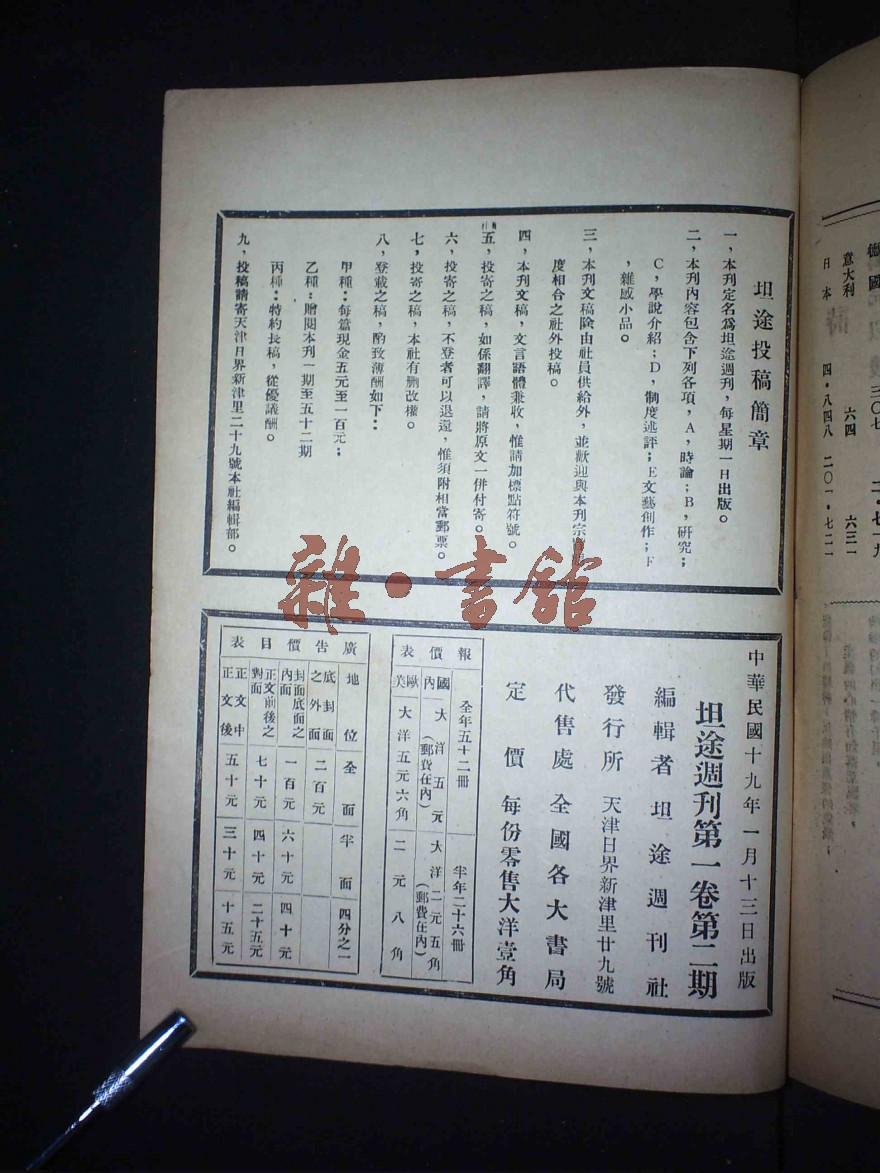 坦途投稿簡章
一，本刊定名爲坦途週刊，每星期一日出版。
二，本刊內容包含下列各項，A，時論；B，研究；
C，學說介紹；D，制度述評；E文藝創作；F
，雜感小品。
三，本刊文稿除由社員供給外，並歡迎與本刊宗
度相合之社外投稿。
四，本刊文稿，文言語體兼收，惟請加標點符號。
五，投寄之稿，如係翻譯，請將原文一併付寄。
六，投寄之稿，不登者可以退還，惟須附相當郵票。
七，投寄之稿，本社有删改權。
八，登載之稿，酌致薄酬如下：
甲種：每篇現金五元至一百元；
乙種：贈閱本刊一期至五十二期
丙種：特約長稿，從優議酬。
九，投稿請寄天津日界新津里二十九號本社編輯部。
中華民國十九年一月十三日出版
坦途週刊第一卷第二期
編輯者 坦途週刊社
發行所 天津日界新津里廿九號
代售處 全國各大書局
定價 每份零售大洋壹角
報價表
全年五十二冊 半年二十六冊
國內 大洋五元（郵費在內） 大洋二元五角（郵費在內）
歐美 大洋五元六角 二元八角
廣告價目表
地位 全面 半面 四分之一
底封面之外面 二百元
封面底面之內面 一百元 六十元 四十元
正文前後之對面 七十元 四十元 二十五元
正文中正文後 五十元 三十元 十五元
雜·書館
德國 三〇七 二·七一九
意大利 六四 六三一
日本 四·八四八 二〇一·七二一